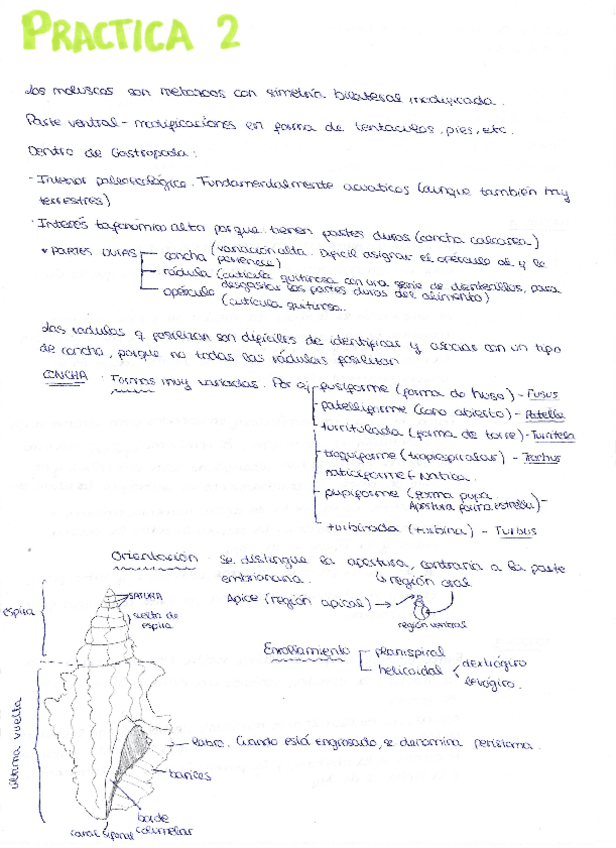 PRACTICA 2
Los moluscos son metazoos con simetría bilateral modificada.
Parte ventral - modificaciones en forma de tentáculos, pies, etc.
Dentro de Gastropoda:
- Interior paleoecológico. Fundamentalmente acuáticos (aunque también hay
terrestres)
· Interés tafonómico alto porque tienen partes duras (concha calcárea)
* PARTES DURAS concha (variación alta. Difícil asignar el opérculo al q le
pertenece)
rádula (cutícula quitinosa con una serie de dentículos, para
desgastar las partes duras del alimento)
opérculo (cutícula quitinosa..
Las rádulas q fosilizan son difíciles de identificar y asociar con un tipo
de concha, porque no todas las rádulas fosilizan
CONCHA : Formas muy variadas. Por ej fusiforme (forma de huso) - Fusus
- patelliforme (cono abierto) - Patella
- turritulada (forma de torre) - Turritela
- troquiforme (trocospiralas) - Trochus
naticiforme - Natica.
- pupiforme (forma pupa.
Apertura forma estrella) -
- turbinada (turbina) - Turbus
Orientación Se distingue la apertura, contraria a la parte
embrionaria. ↳ región oral
Apice (región apical) →
región ventral
Enrollamiento planispiral
helicoidal dextrógiro
levógiro.
espira
SUTURA
vuelta de
espira
última vuelta
labro. Cuando está engrosado, se denomina peristoma.
varices
borde
columelar
canal sifonal